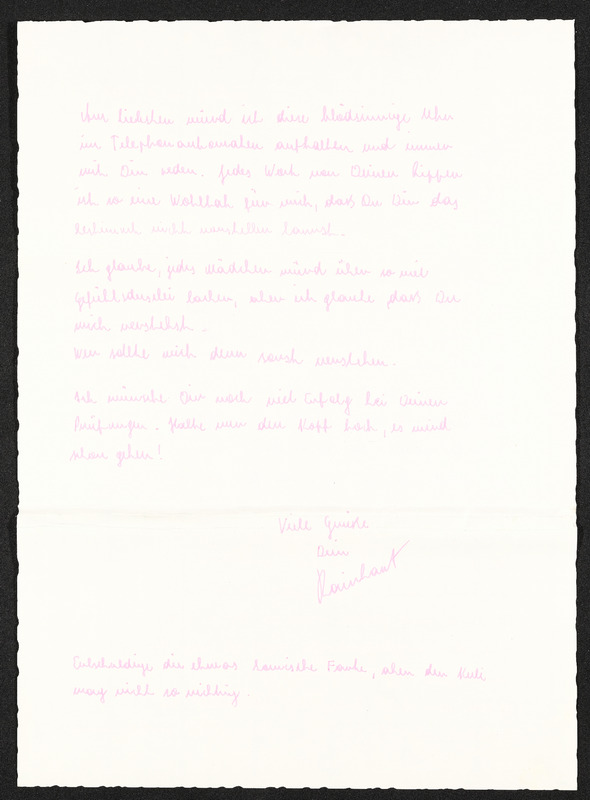 Am liebsten würd ich diese blödsinnige Uhr
im Telephonautomaten aufhalten und immer
mit Dir reden. Jedes Wort von Deinen Lippen
ist so eine Wohltat für mich, daß Du Dir das
bestimmt nicht vorstellen kannst.
Ich glaube, jedes Mädchen würd über so viel
Gefühlsduselei lachen, aber ich glaube, daß Du
mich verstehst.
Wer sollte mich denn sonst verstehen.
Ich wünsche Dir noch viel Erfolg bei Deinen
Prüfungen. Halte nur den Kopf hoch, es wird
schon gehen!
Viele Grüße
Dein
Rainhart
Entschuldige die etwas komische Farbe, aber der Kuli
mag nicht so richtig.